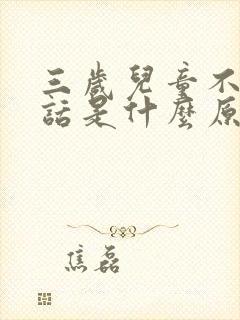 三歲兒童不
話是什麼原
焦磊